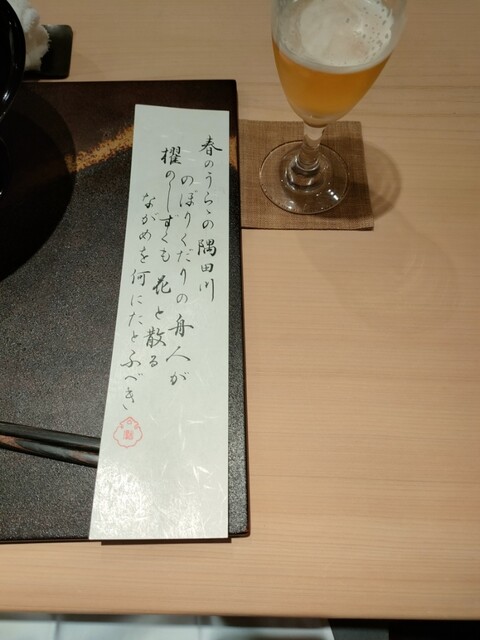 春のうらゝの隅田川
のぼりくだりの舟人が
櫂のしずくも花と散る
ながめを何にたとふべき